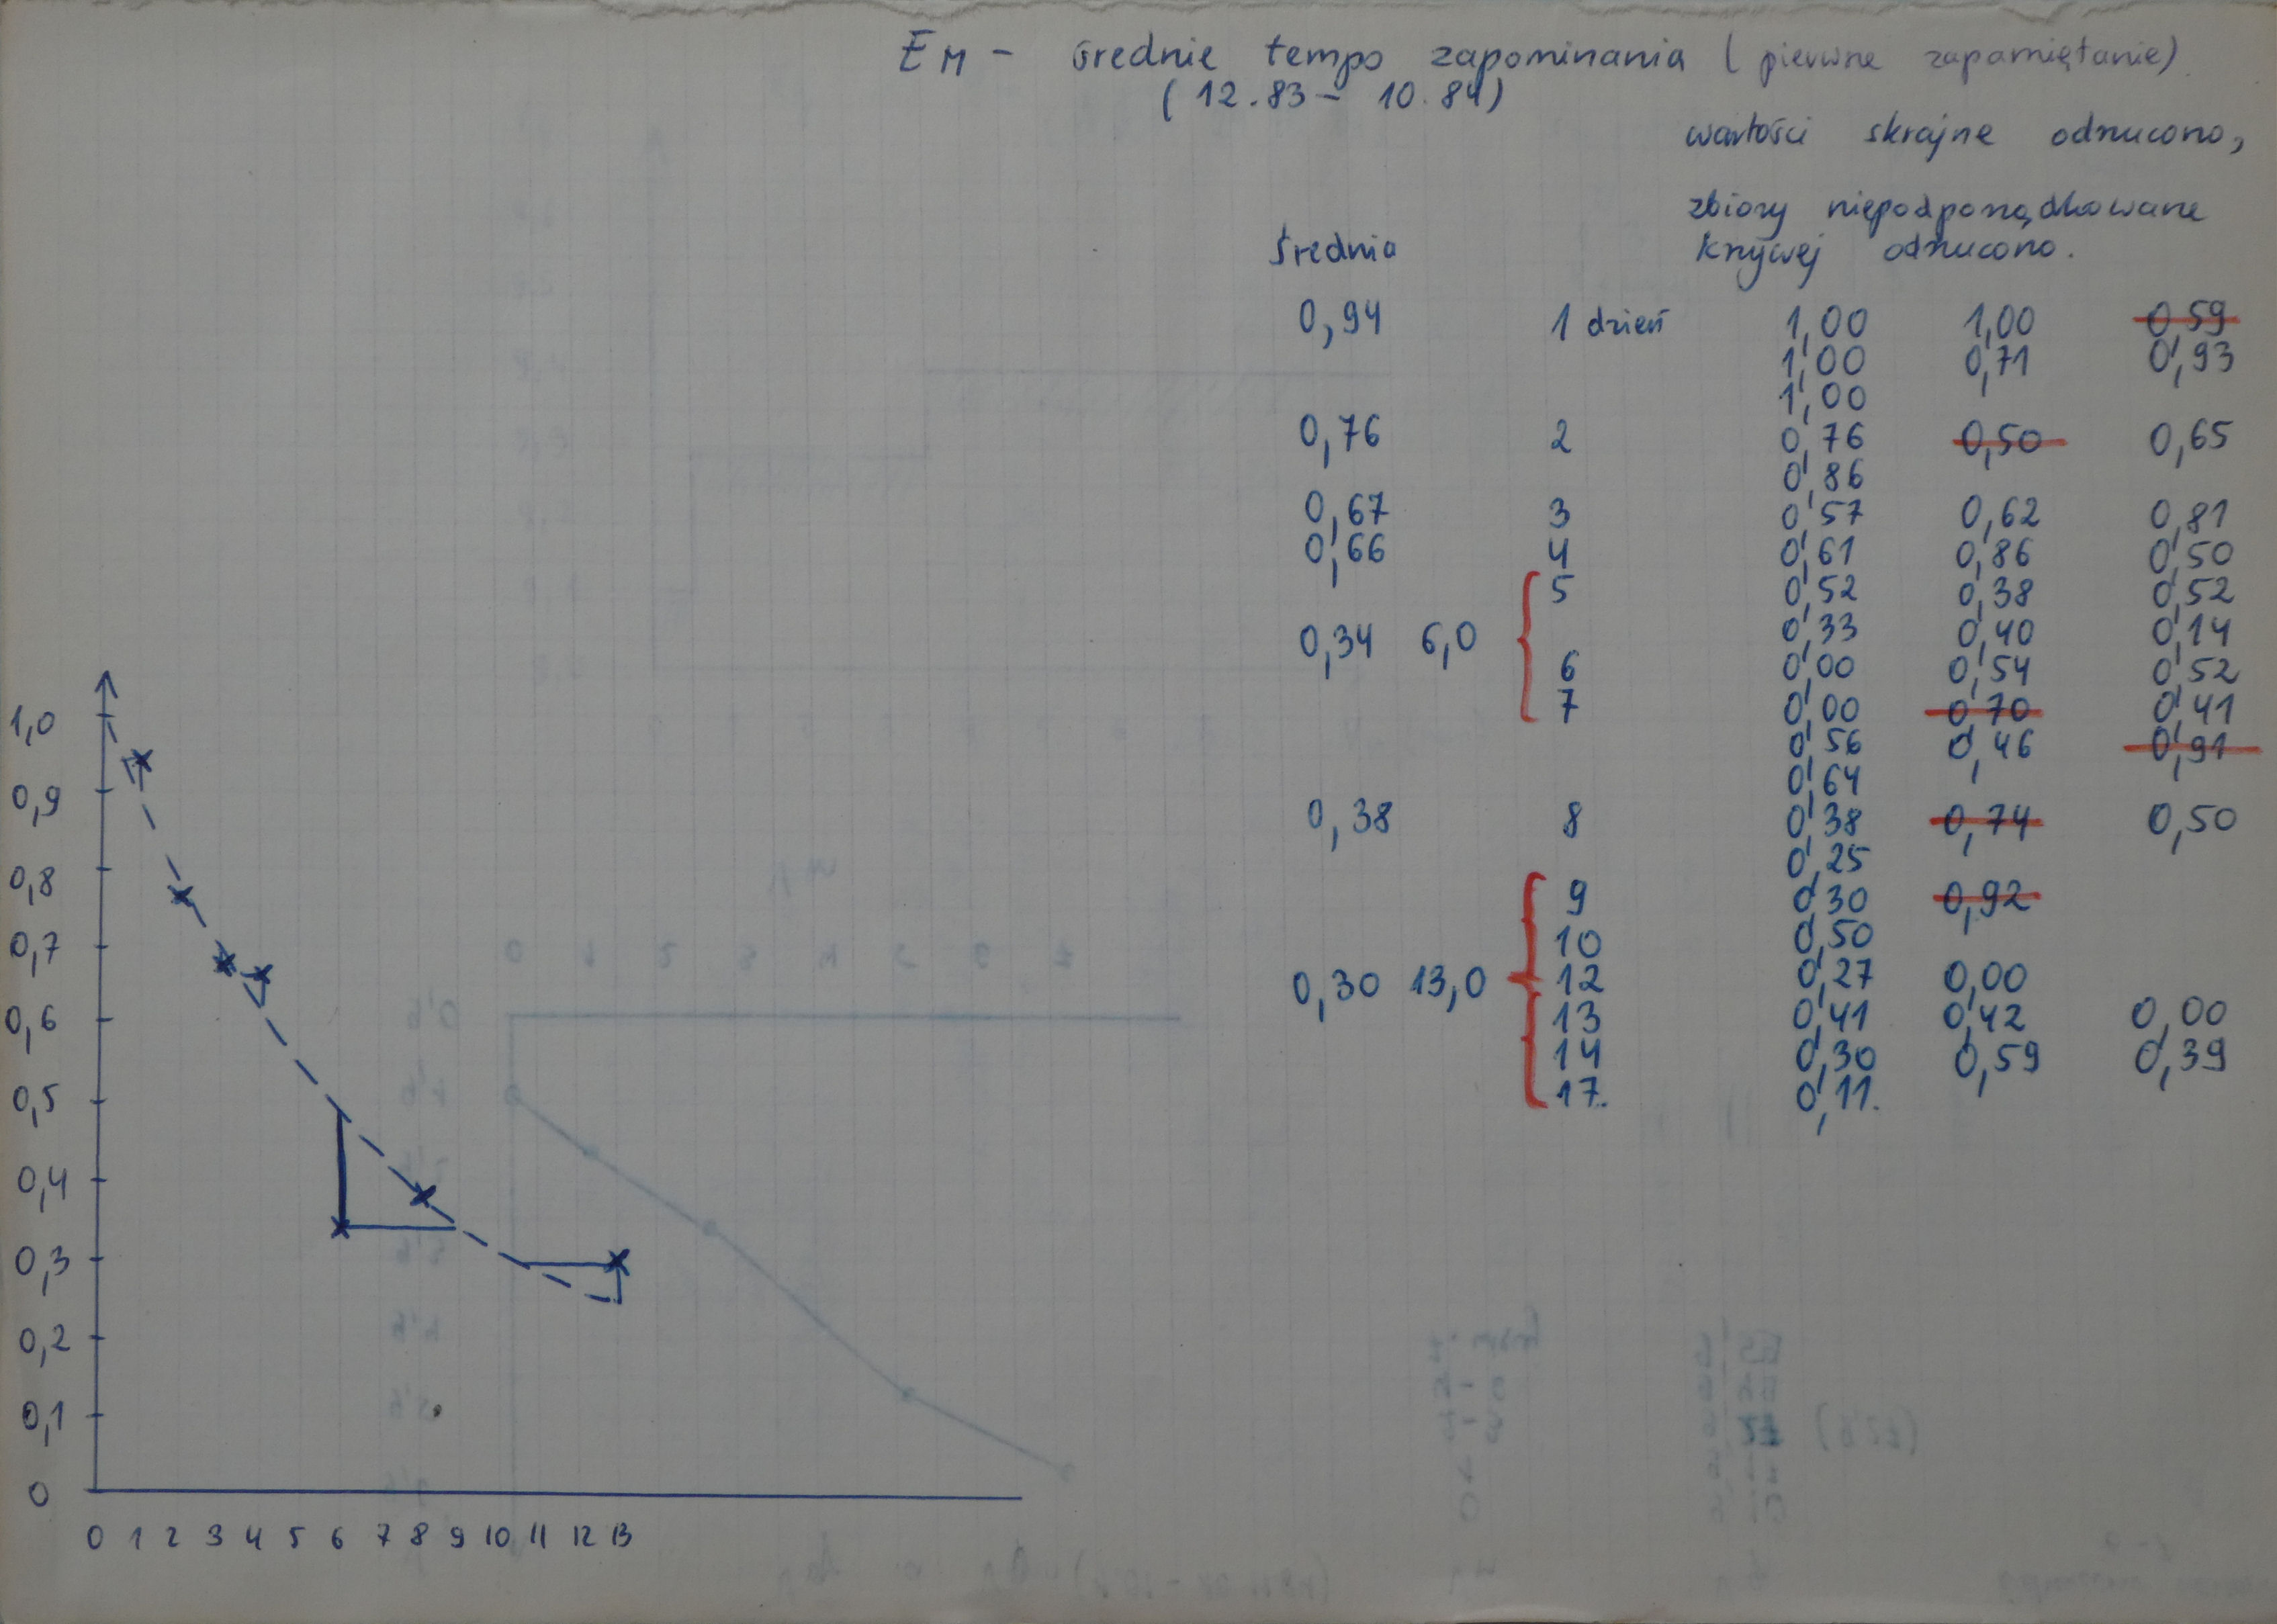 EM - średnie tempo zapominania (pierwsze zapamiętanie)
(12.83 - 10.84)
wartości skrajne odrzucono,
zbiory niepodporządkowane
krzywej odrzucono.
Średnia
0,94 1 dzień 1,00 1,00 0,59
1,00 0,71 0,93
1,00
0,76 2 0,76 0,50 0,65
0,86
0,67 3 0,57 0,62 0,81
0,66 4 0,61 0,86 0,50
5 0,52 0,38 0,52
0,34 6,0 0,33 0,40 0,14
6 0,00 0,54 0,52
7 0,00 0,70 0,41
0,56 0,46 0,91
0,64
0,38 8 0,38 0,74 0,50
0,25
9 0,30 0,92
10 0,50
0,30 13,0 12 0,27 0,00
13 0,41 0,42 0,00
14 0,30 0,59 0,39
17. 0,11.
1,0
0,9
0,8
0,7
0,6
0,5
0,4
0,3
0,2
0,1
0
0 1 2 3 4 5 6 7 8 9 10 11 12 13